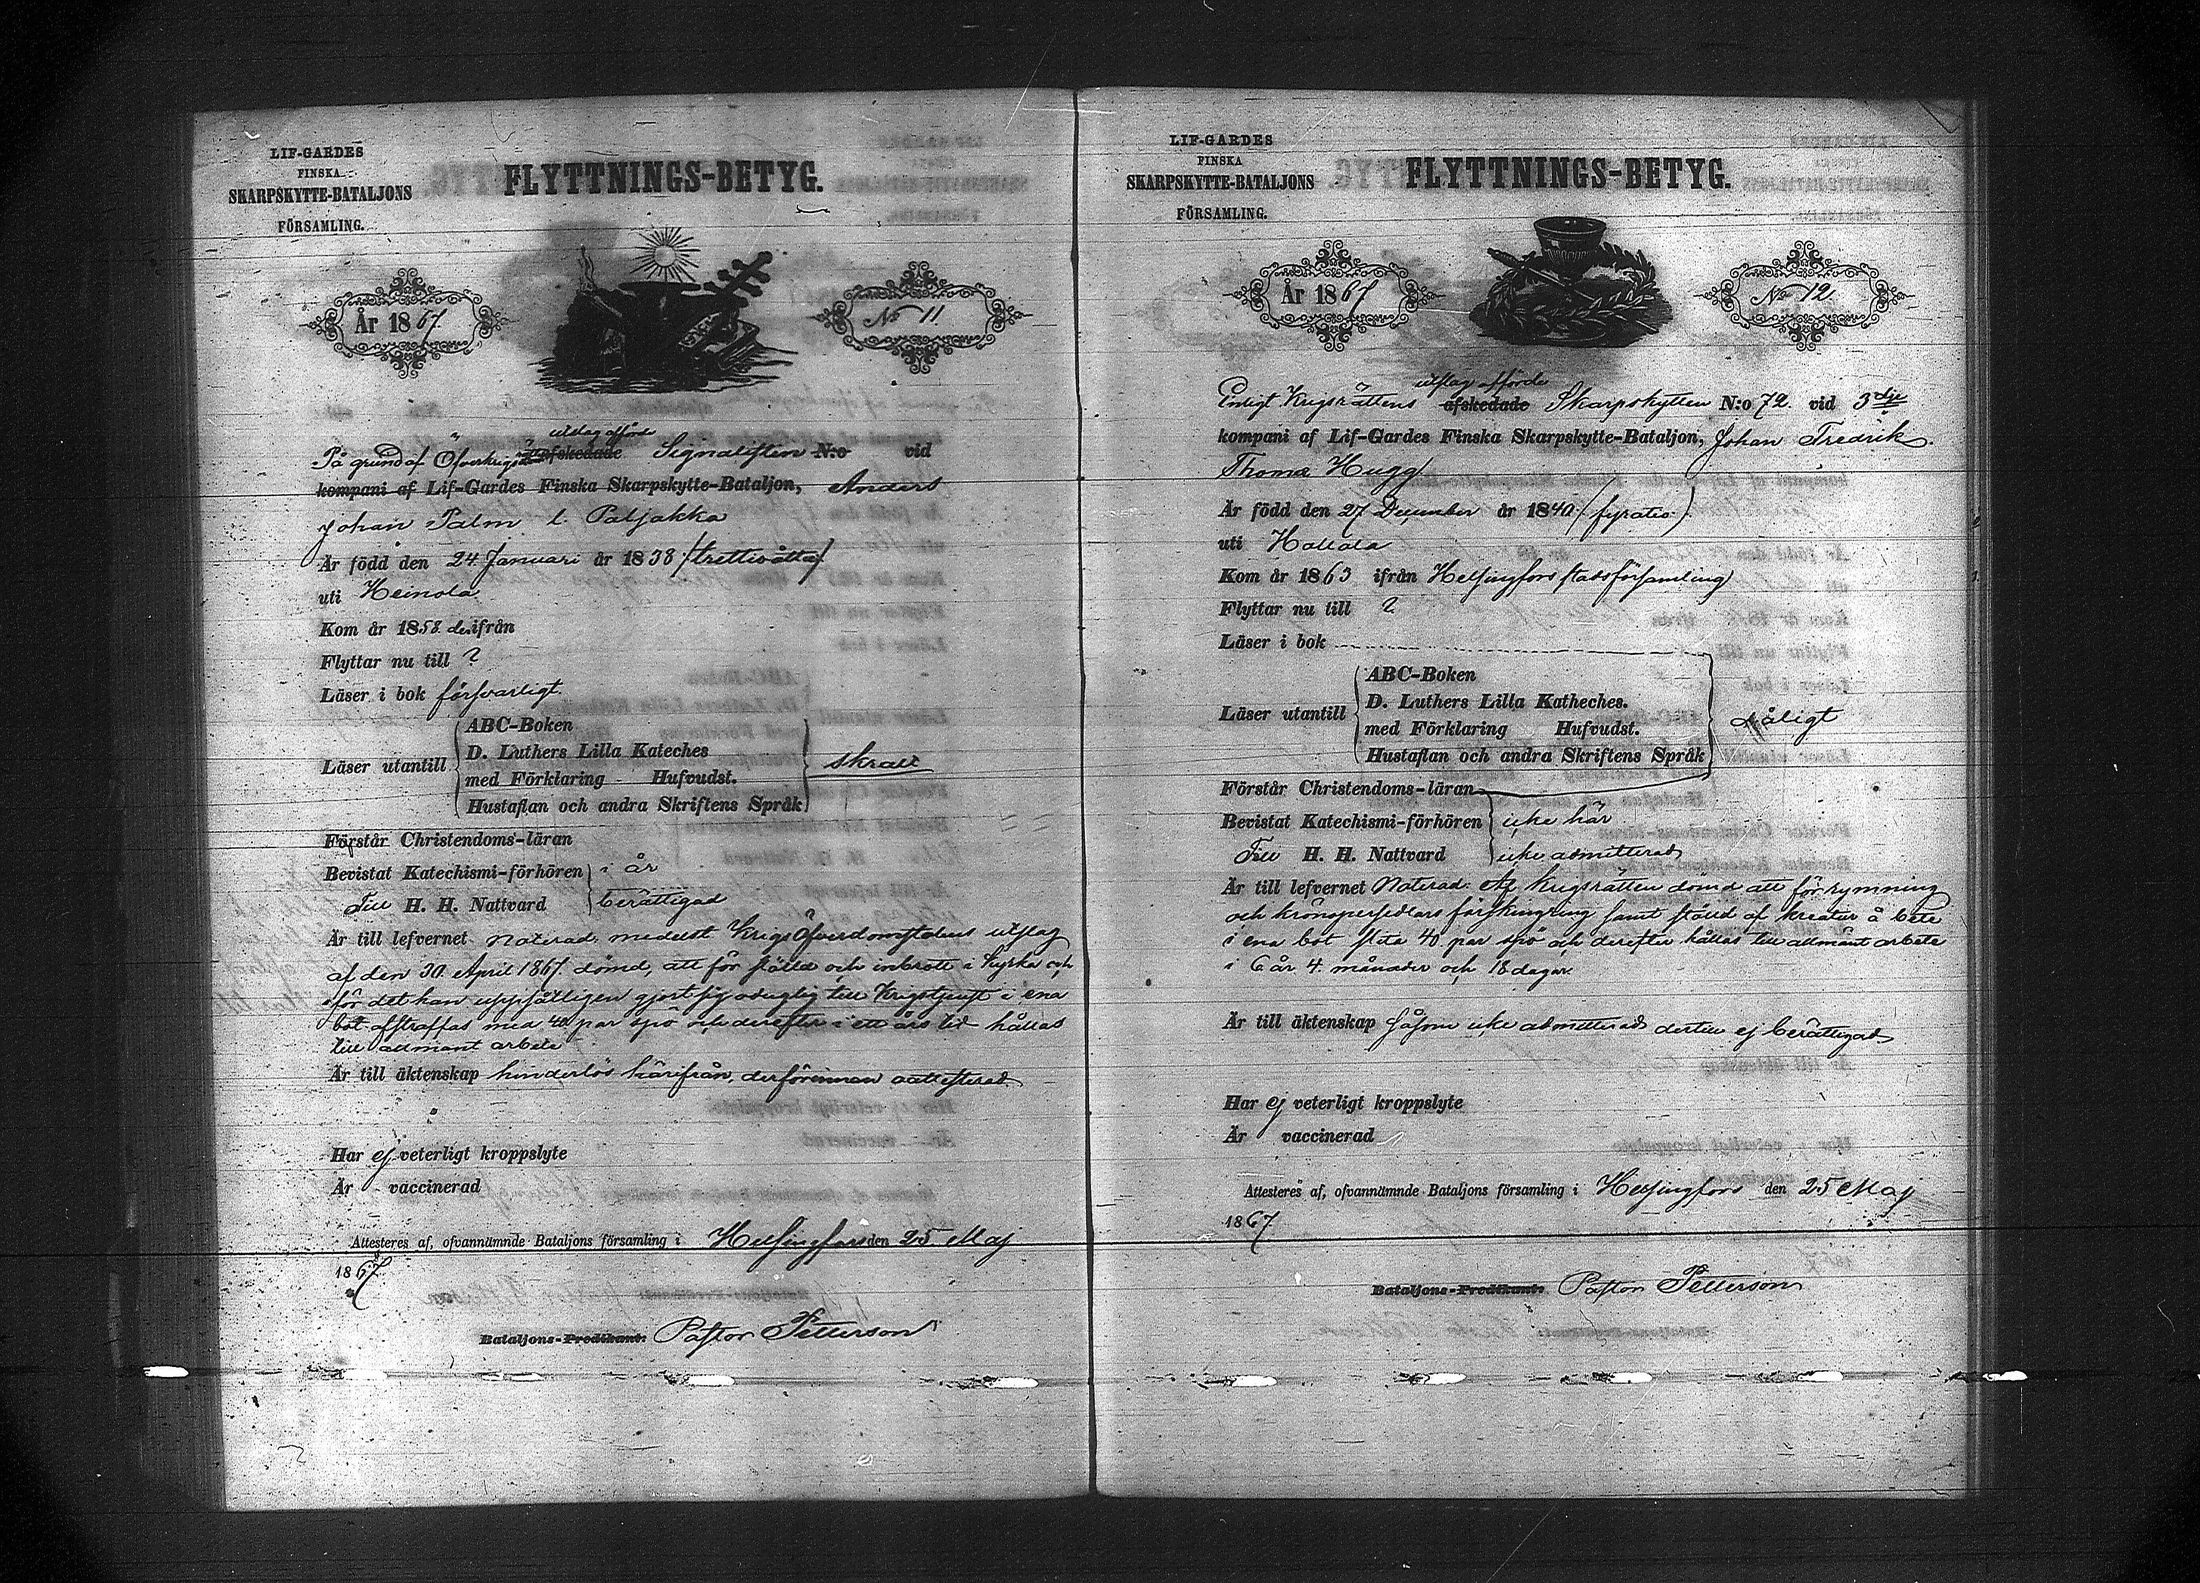 LIF-GARDES
FINSKA
SKARPSKYTTE-BATALJONS
FÖRSAMLING.
FLYTTNINGS-BETYG.
År 1867.
No 11.
utslag afförde
På grund af Öfverkrigs afskedade Signalisten N:o vid
kompani af Lif-Gardes Finska Skarpskytte-Bataljon, Anders
Johan Palm l. Paljakka
Är född den 24 Januari år 1838 (trettioåtta)
uti Heinola
Kom år 1858. ifrån
Flyttar nu till ?
Läser i bok försvarligt
Läser utantill
ABC-Boken
D. Luthers Lilla Kateches
med Förklaring Hufvudst.
Hustaflan och andra Skriftens Språk
skralt
Förstår Christendoms-läran
Bevistat Katechismi-förhören i år
Till H. H. Nattvard berättigad
Är till lefvernet noterad: medelst Krigs Öfverdomstolens utslag
af den 30. April 1867. dömd, att för stöld och inbrott i kyrka och
för det han uppsåtligen gjort sig oduglig till Krigstjenst i ena
bot afstraffas med 40 par spö och derefter i ett års tid hållas
till allmänt arbete
Är till äktenskap hinderlös härifrån, derförinnan oattesterad.
Har ej veterligt kroppslyte
Är vaccinerad
Attesteres af, ofvannämnde Bataljons församling i Helsingfors den 25 Maj
1867
Bataljons-Predikant: Pastor Petterson
LIF-GARDES
FINSKA
SKARPSKYTTE-BATALJONS
FÖRSAMLING.
FLYTTNINGS-BETYG.
År 1867
No 12.
utslag afförde
Enligt Krigsrättens afskedade Skarpskytten N:o 72. vid 3dje
kompani af Lif-Gardes Finska Skarpskytte-Bataljon, Johan Fredrik
Thomæ Hugg
Är född den 27 December år 1840 (fyratio)
uti Hollola
Kom år 1863 ifrån Helsingfors stadsförsamling
Flyttar nu till ?
Läser i bok
Läser utantill
ABC-Boken
D. Luthers Lilla Katheches.
med Förklaring Hufvudst.
Hustaflan och andra Skriftens Språk
dåligt
Förstår Christendoms-läran
Bevistat Katechismi-förhören icke här
Till H. H. Nattvard icke admitterad
Är till lefvernet Noterad: Af Krigsrätten dömd att för rymning
och kronopersedlars förskingring samt stöld af kreatur å bete
i ena bot slita 40 par spö och derefter hållas till allmänt arbete
i 6 år 4. månader och 18 dagar.
Är till äktenskap såsom icke admitterad dertill ej berättigad
Har ej veterligt kroppslyte
Är vaccinerad
Attesteres af, ofvannämnde Bataljons församling i Helsingfors den 25 Maj
1867
Bataljons-Predikant: Pastor Petterson